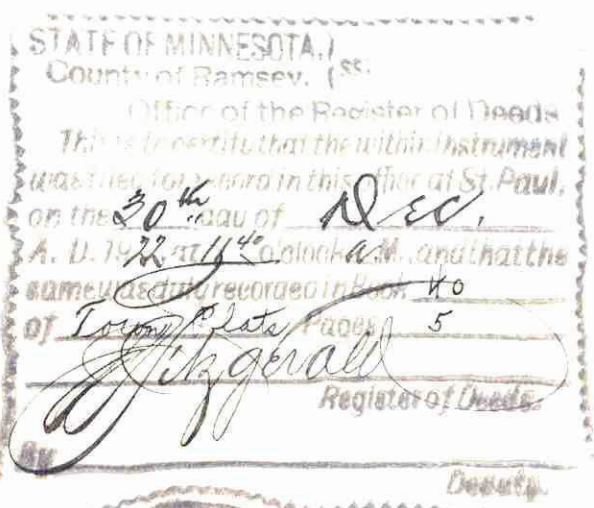 STATE OF MINNESOTA,)
County of Ramsey. (SS.
Office of the Register of Deeds
This is to certify that the within instrument
was filed for record in this office at St. Paul,
on the 30th day of Dec.
A. D. 1922 at 11 40 o'clock A.M. and that the
same was duly recorded in Book 40
of Town Plats Pages 5
Fitzgerald
Register of Deeds.
By
Deputy.